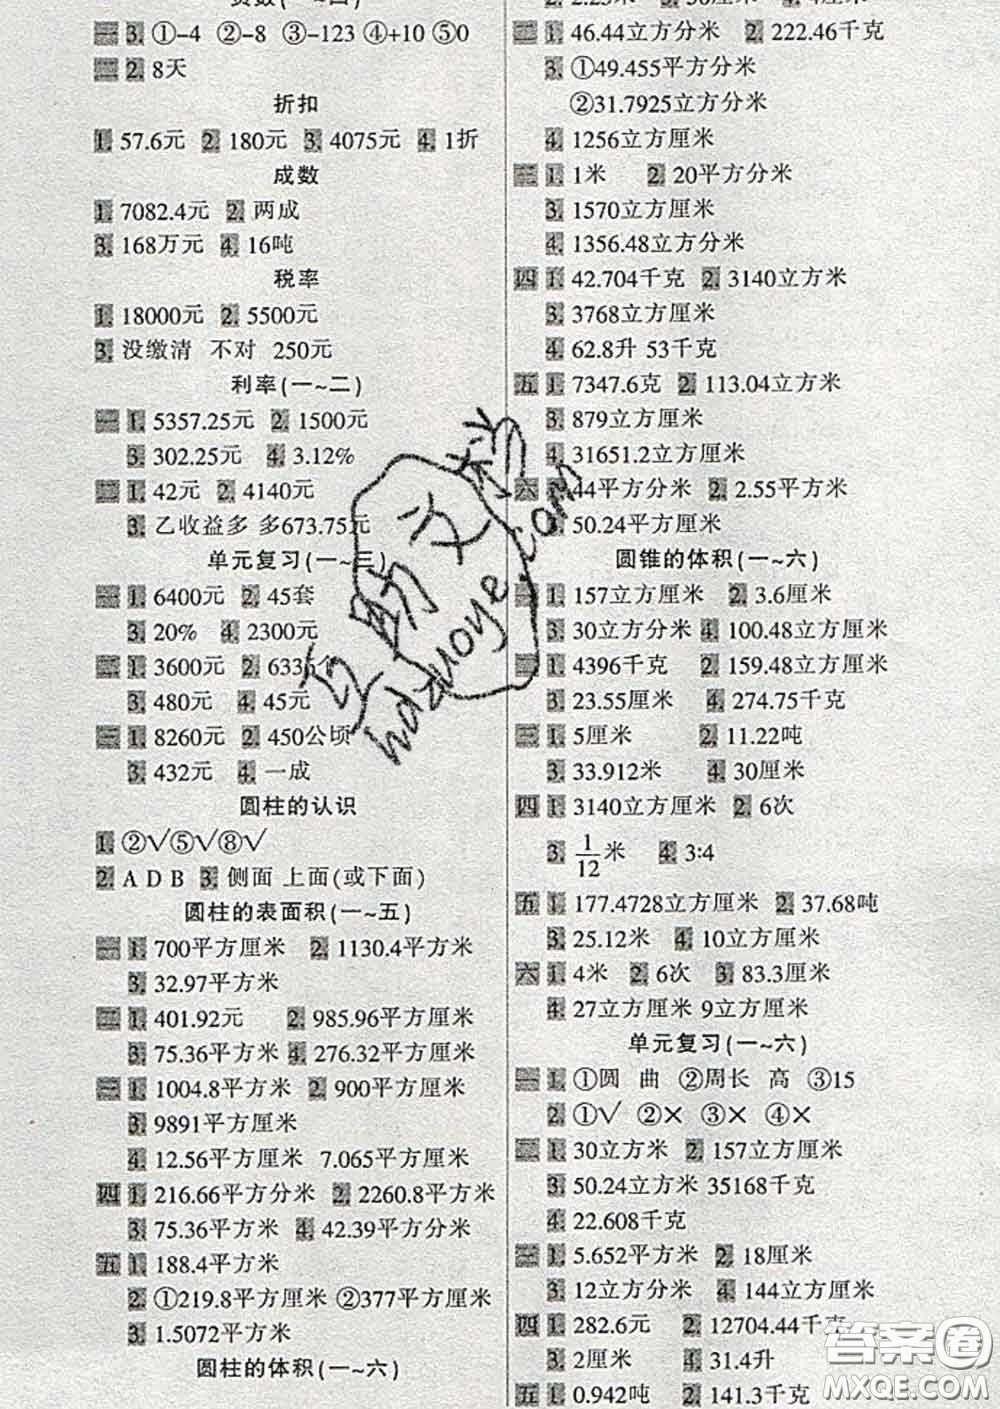 负数(一~四)
一 3. ①-4 ②-8 ③-123 ④+10 ⑤0
二 2. 8天
折扣
1. 57.6元 2. 180元 3. 4075元 4. 1折
成数
1. 7082.4元 2. 两成
3. 168万元 4. 16吨
税率
1. 18000元 2. 5500元
3. 没缴清 不对 250元
利率(一~二)
一 1. 5357.25元 2. 1500元
3. 302.25元 4. 3.12%
二 1. 42元 2. 4140元
3. 乙收益多 多673.75元
单元复习(一~三)
一 1. 6400元 2. 45套
3. 20% 4. 2300元
二 1. 3600元 2. 6336个
3. 480元 4. 45元
三 1. 8260元 2. 450公顷
3. 432元 4. 一成
圆柱的认识
1. ②√⑤√⑧√
2. A D B 3. 侧面 上面(或下面)
圆柱的表面积(一~五)
一 1. 700平方厘米 2. 1130.4平方米
3. 32.97平方米
二 1. 401.92元 2. 985.96平方厘米
3. 75.36平方米 4. 276.32平方米
三 1. 1004.8平方米 2. 900平方厘米
3. 9891平方厘米
4. 12.56平方厘米 7.065平方厘米
四 1. 216.66平方分米 2. 2260.8平方米
3. 75.36平方米 4. 42.39平方分米
五 1. 188.4平方米
2. ①219.8平方厘米 ②377平方厘米
3. 1.5072平方米
圆柱的体积(一~六)
2.25米 3. 30厘米 4. 4厘米
二 1. 46.44立方分米 2. 222.46千克
3. ①49.455平方分米
②31.7925立方分米
4. 1256立方厘米
三 1. 1米 2. 20平方分米
3. 1570立方厘米
4. 1356.48立方分米
四 1. 42.704千克 2. 3140立方米
3. 3768立方厘米
4. 62.8升 53千克
五 1. 7347.6克 2. 113.04立方米
3. 879立方厘米
4. 31651.2立方厘米
六 44平方分米 2. 2.55平方米
3. 50.24平方厘米
圆锥的体积(一~六)
一 1. 157立方厘米 2. 3.6厘米
3. 30立方分米 4. 100.48立方厘米
二 1. 4396千克 2. 159.48立方厘米
3. 23.55厘米 4. 274.75千克
三 1. 5厘米 2. 11.22吨
3. 33.912米 4. 30厘米
四 1. 3140立方厘米 2. 6次
3. 1/12米 4. 3:4
五 1. 177.4728立方厘米 2. 37.68吨
3. 25.12米 4. 10立方厘米
六 1. 4米 2. 6次 3. 83.3厘米
4. 27立方厘米 9立方厘米
单元复习(一~六)
一 1. ①圆 曲 ②周长 高 ③15
2. ①√ ②× ③× ④×
二 1. 30立方米 2. 157立方厘米
3. 50.24立方米 35168千克
4. 22.608千克
三 1. 5.652平方米 2. 18厘米
3. 12立方分米 4. 144立方厘米
四 1. 282.6元 2. 12704.44千克
3. 2厘米 4. 31.4升
五 1. 0.942吨 2. 141.3千克
互助文档
hdzuoye.com
答案圈
MXQE.COM